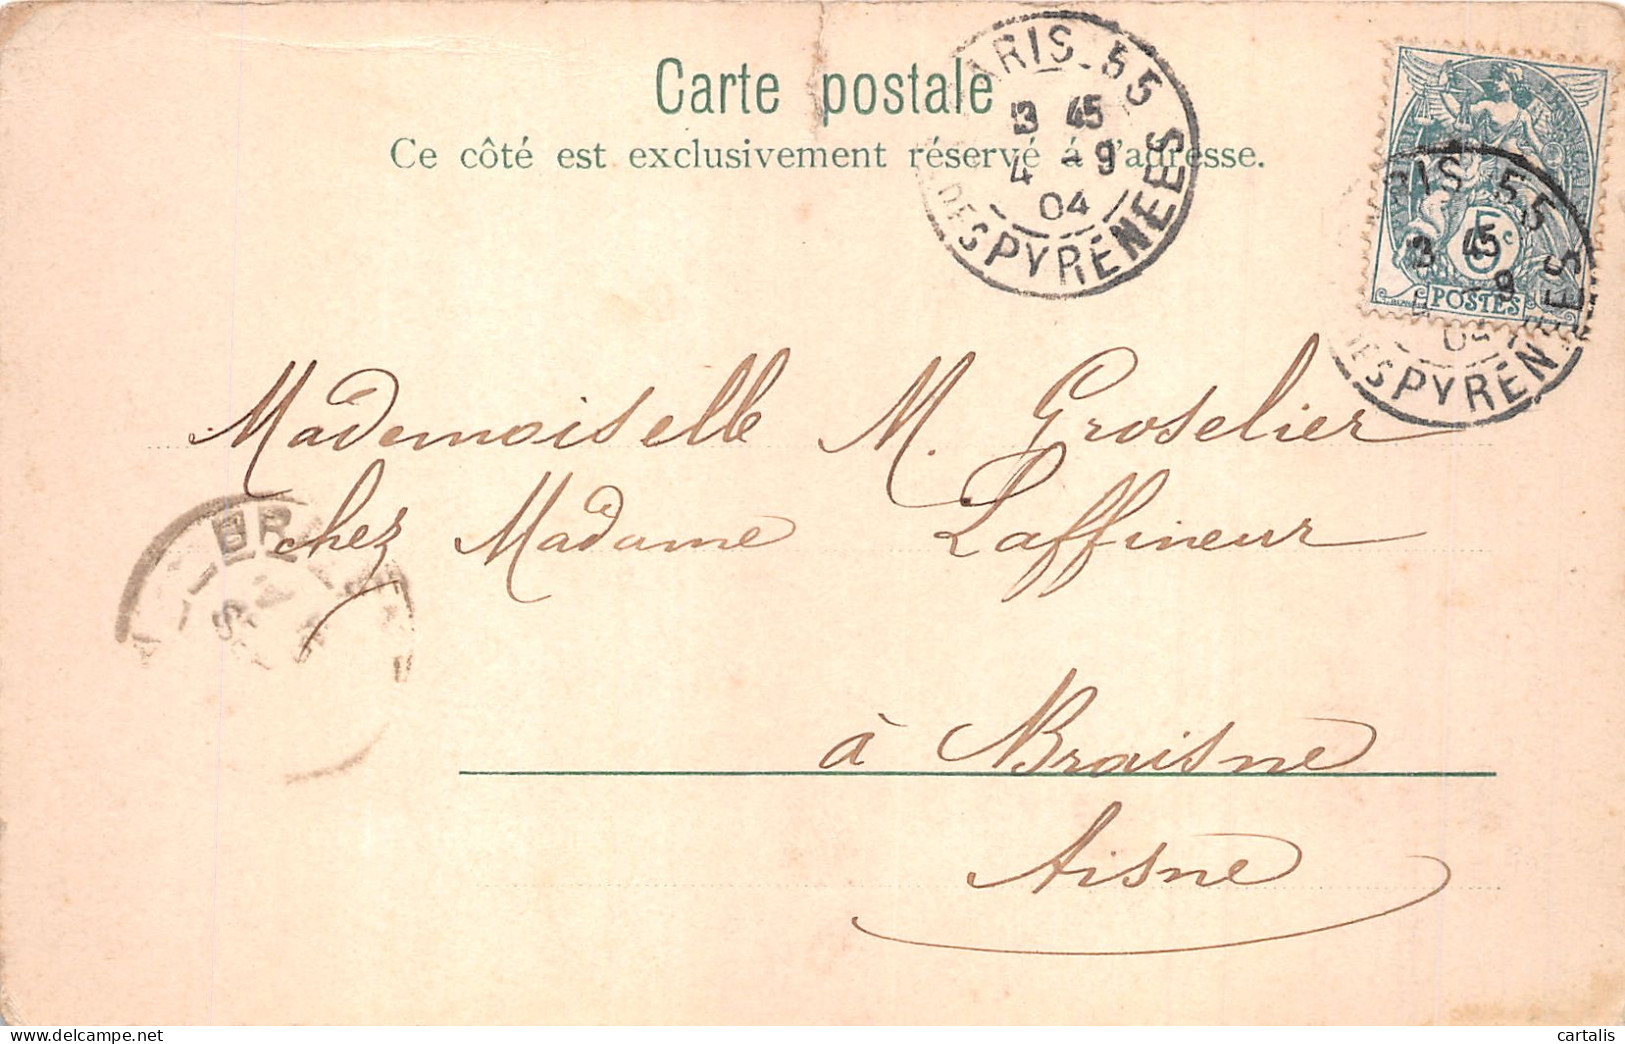 Carte postale
Ce côté est exclusivement réservé á l'adresse.
PARIS 55
13 45
4 - 9
04
DES PYRÉNÉES
5 c
POSTES
PARIS 55
13 45
9
04
DES PYRÉNÉES
Mademoiselle M. Groselier
chez Madame Laffineur
à Braisne
Aisne
cartalis